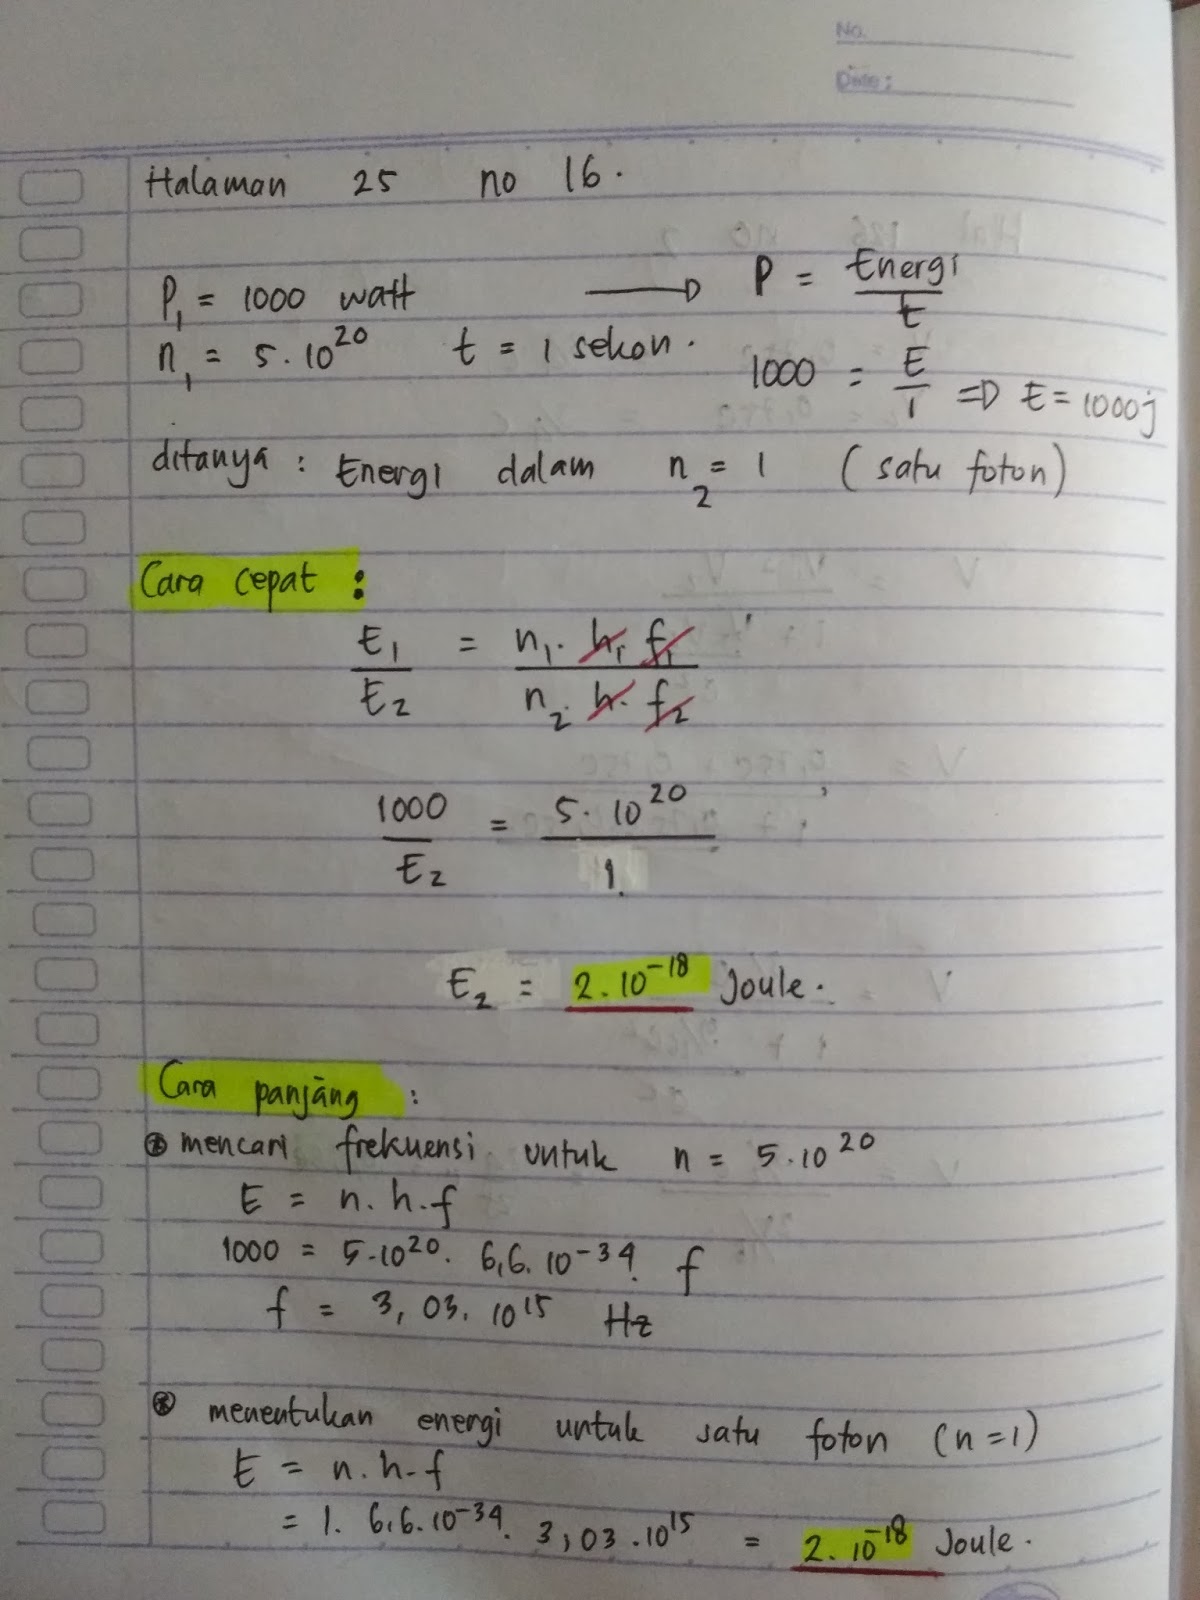 No.
Date:
Halaman 25 no 16.
P₁ = 1000 watt → P = Energi / t
n₁ = 5.10²⁰ t = 1 sekon.
1000 = E / 1 => E = 1000j
ditanya : Energi dalam n₂ = 1 (satu foton)
Cara cepat :
E₁ / E₂ = n₁. h₁ f₁ / n₂. h. f₂
1000 / E₂ = 5.10²⁰ / 1.
E₂ = 2.10⁻¹⁸ Joule.
Cara panjang :
mencari frekuensi untuk n = 5.10²⁰
E = n.h.f
1000 = 5.10²⁰. 6,6.10⁻³⁴. f
f = 3,03.10¹⁵ Hz
menentukan energi untuk satu foton (n=1)
E = n.h.f
= 1. 6,6.10⁻³⁴. 3,03.10¹⁵ = 2.10⁻¹⁸ Joule.